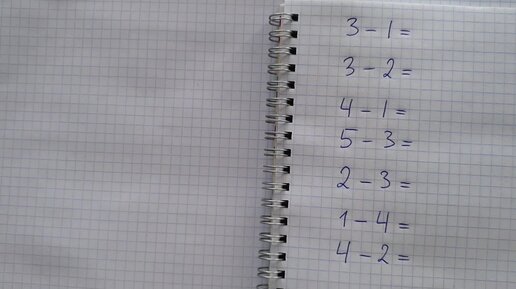 3 - 1 =
3 - 2 =
4 - 1 =
5 - 3 =
2 - 3 =
1 - 4 =
4 - 2 =